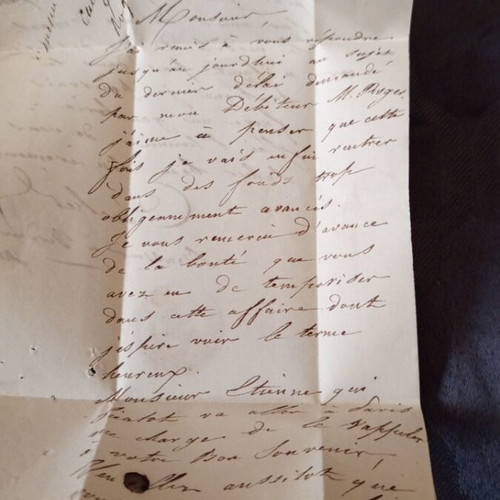 Monsieur,
J'ai remis à vous répondre
jusqu'au jourd'hui au sujet
du dernier délai demandé
par mon Débiteur M.
j'aime à penser que cette
fois je vais enfin rentrer
dans des fonds trop
obligeamment avancés.
Je vous remercie d'avance
de la bonté que vous
avez eu de temporiser
dans cette affaire dont
j'espère voir le terme
heureux.
Monsieur Etienne qui
va aller à Paris
se charge de le rappeler
votre Bon Souvenir,
aussitôt que